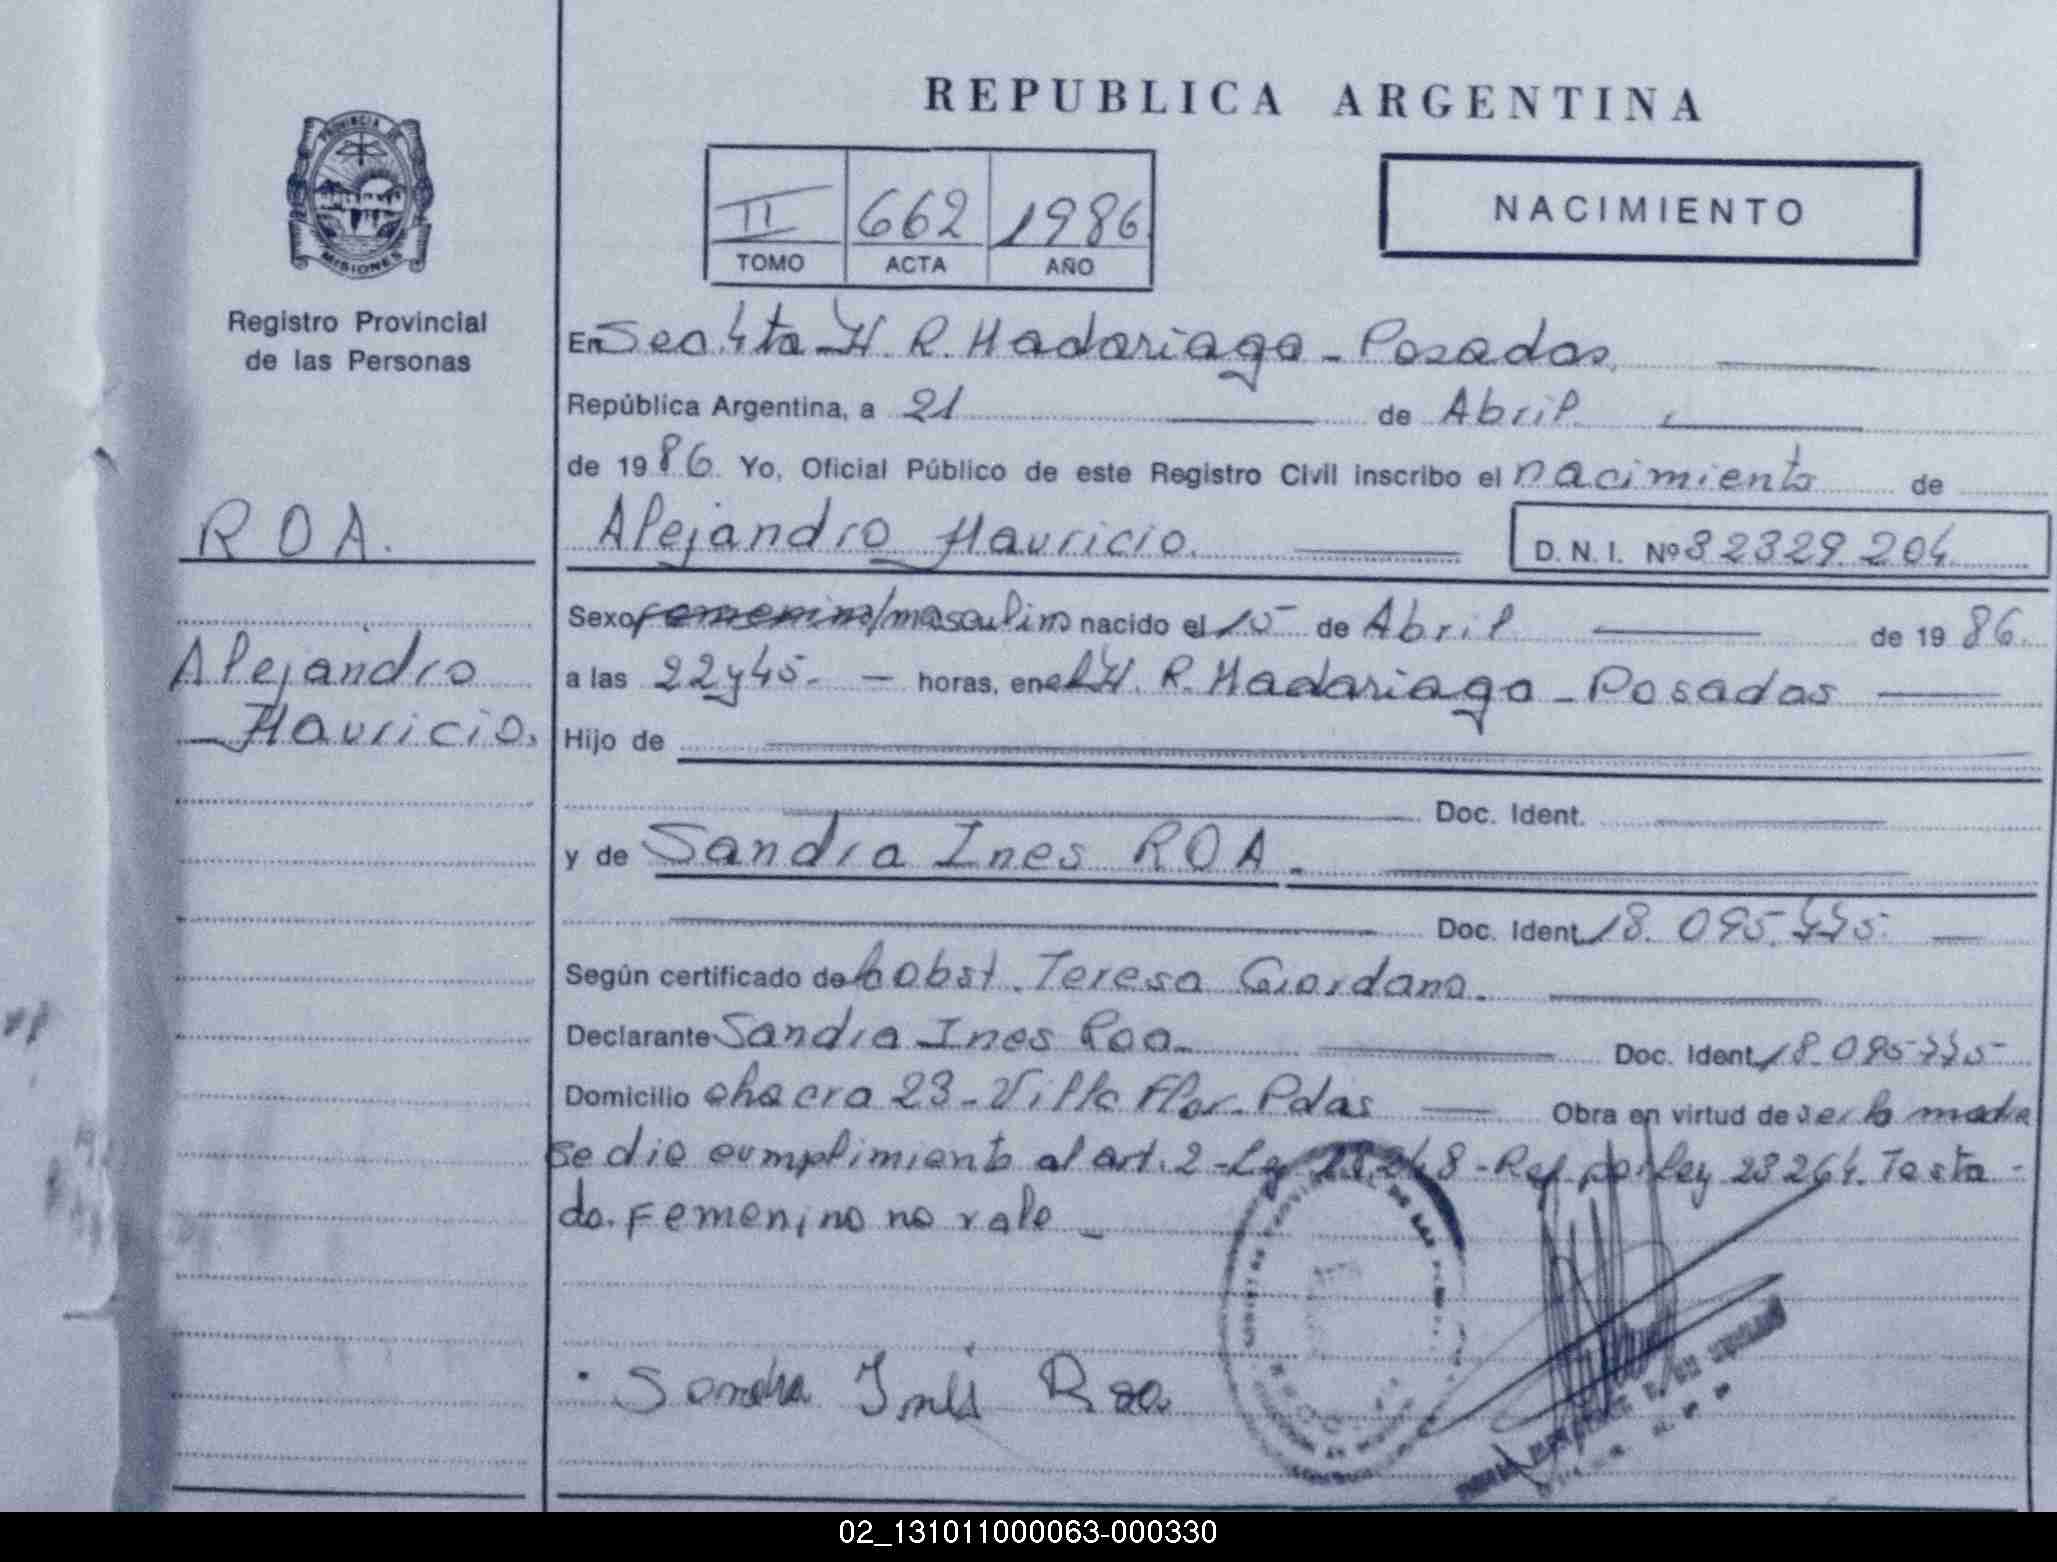 REPUBLICA ARGENTINA
PROVINCIA DE
MISIONES
II 662 1986
TOMO ACTA AÑO
NACIMIENTO
Registro Provincial
de las Personas
En Sec. 4ta H. R. Madariaga - Posadas,
República Argentina, a 21 de Abril
de 1986. Yo, Oficial Público de este Registro Civil inscribo el nacimiento de
ROA.
Alejandro Mauricio. D. N. I. Nº 32329.204
Sexo femenino/masculino nacido el 15 de Abril de 1986.
Alejandro
Mauricio.
a las 22y45. — horas, en el H. R. Madariaga - Posadas
Hijo de
Doc. Ident.
y de Sandra Ines ROA.
Doc. Ident. 18.095.775
Según certificado de la obst. Teresa Giordano.
Declarante Sandra Ines Roa. Doc. Ident. 18.095775
Domicilio chacra 23 - Villa Flor - Pdas Obra en virtud de ser la madre
se dio cumplimiento al art. 2 - Ley 18248 - Ref por Ley 23264. Testa-
do. Femenino no vale
Sandra Inés Roa
02_131011000063-000330